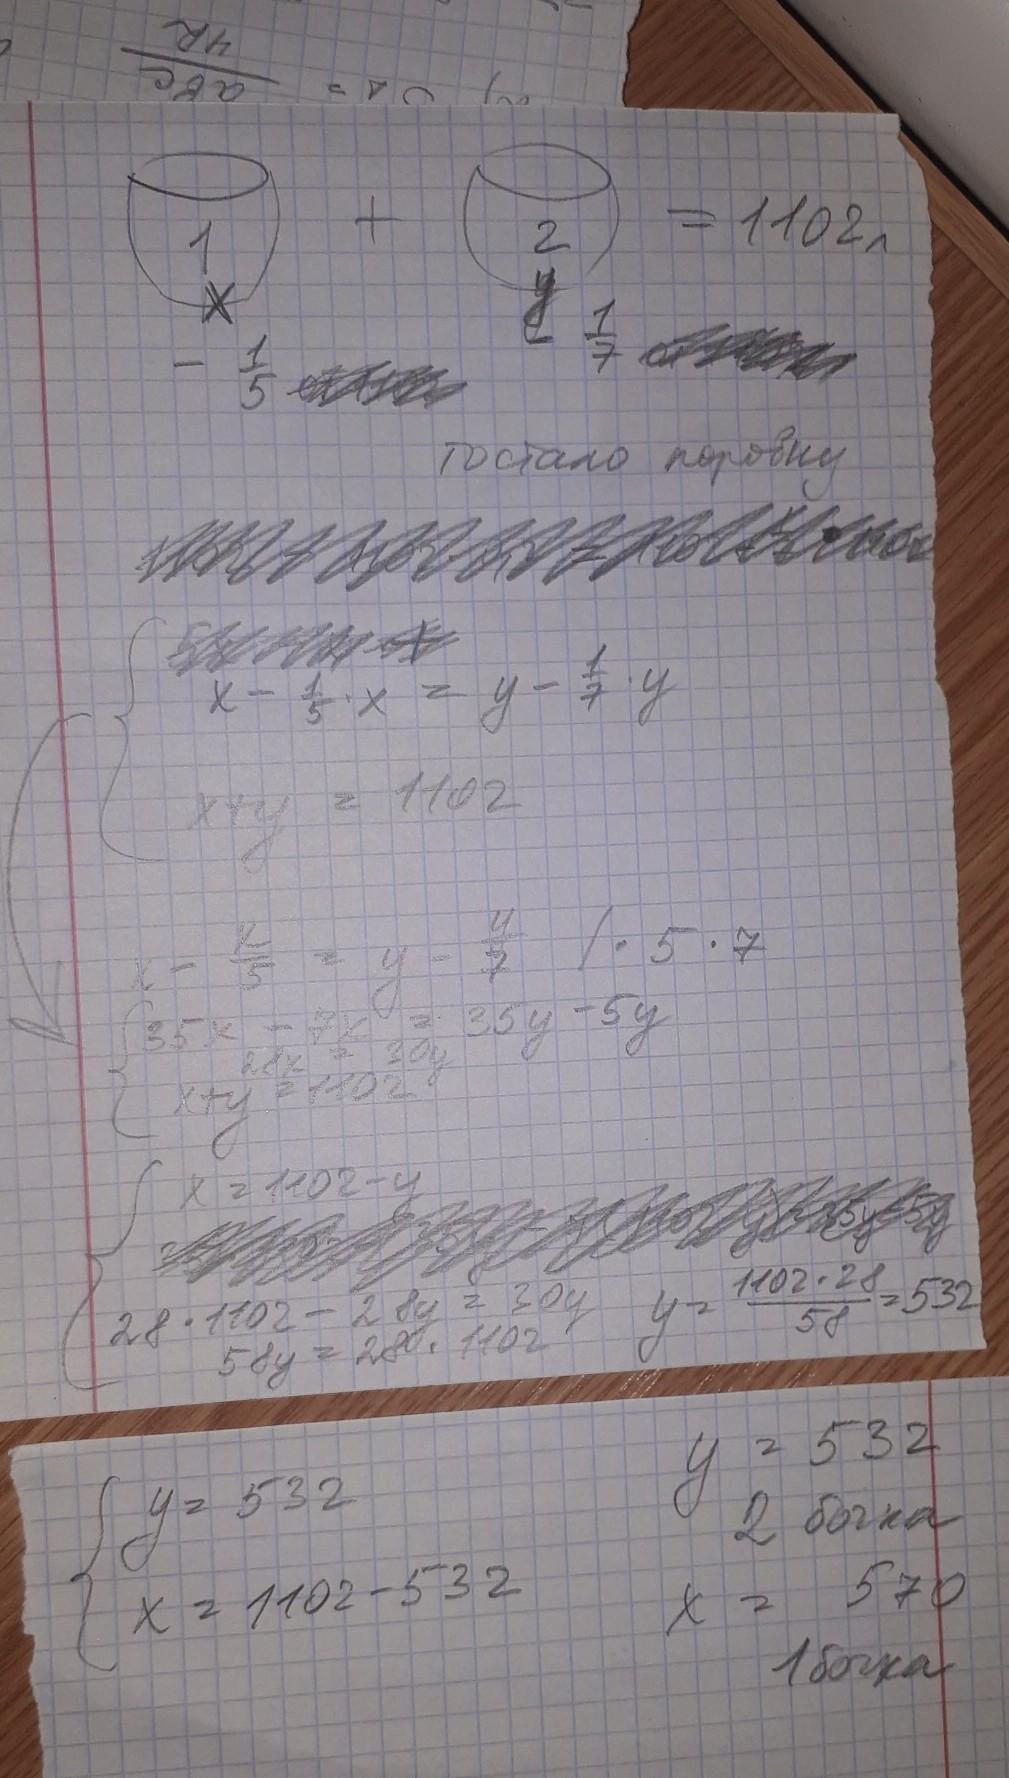 abc
4R
1 + 2 = 1102л
x y
- 1/5 - 1/7
тостало поровну
x - 1/5 · x = y - 1/7 · y
x+y = 1102
x - x/5 = y - y/7 / · 5 · 7
35x - 7x = 35y - 5y
28x = 30y
x+y = 1102
x = 1102 - y
28 · 1102 - 28y = 30y y = 1102 · 28 / 58 = 532
58y = 280 · 1102
y = 532 y = 532
2 бочка
x = 1102 - 532 x = 570
1 бочка